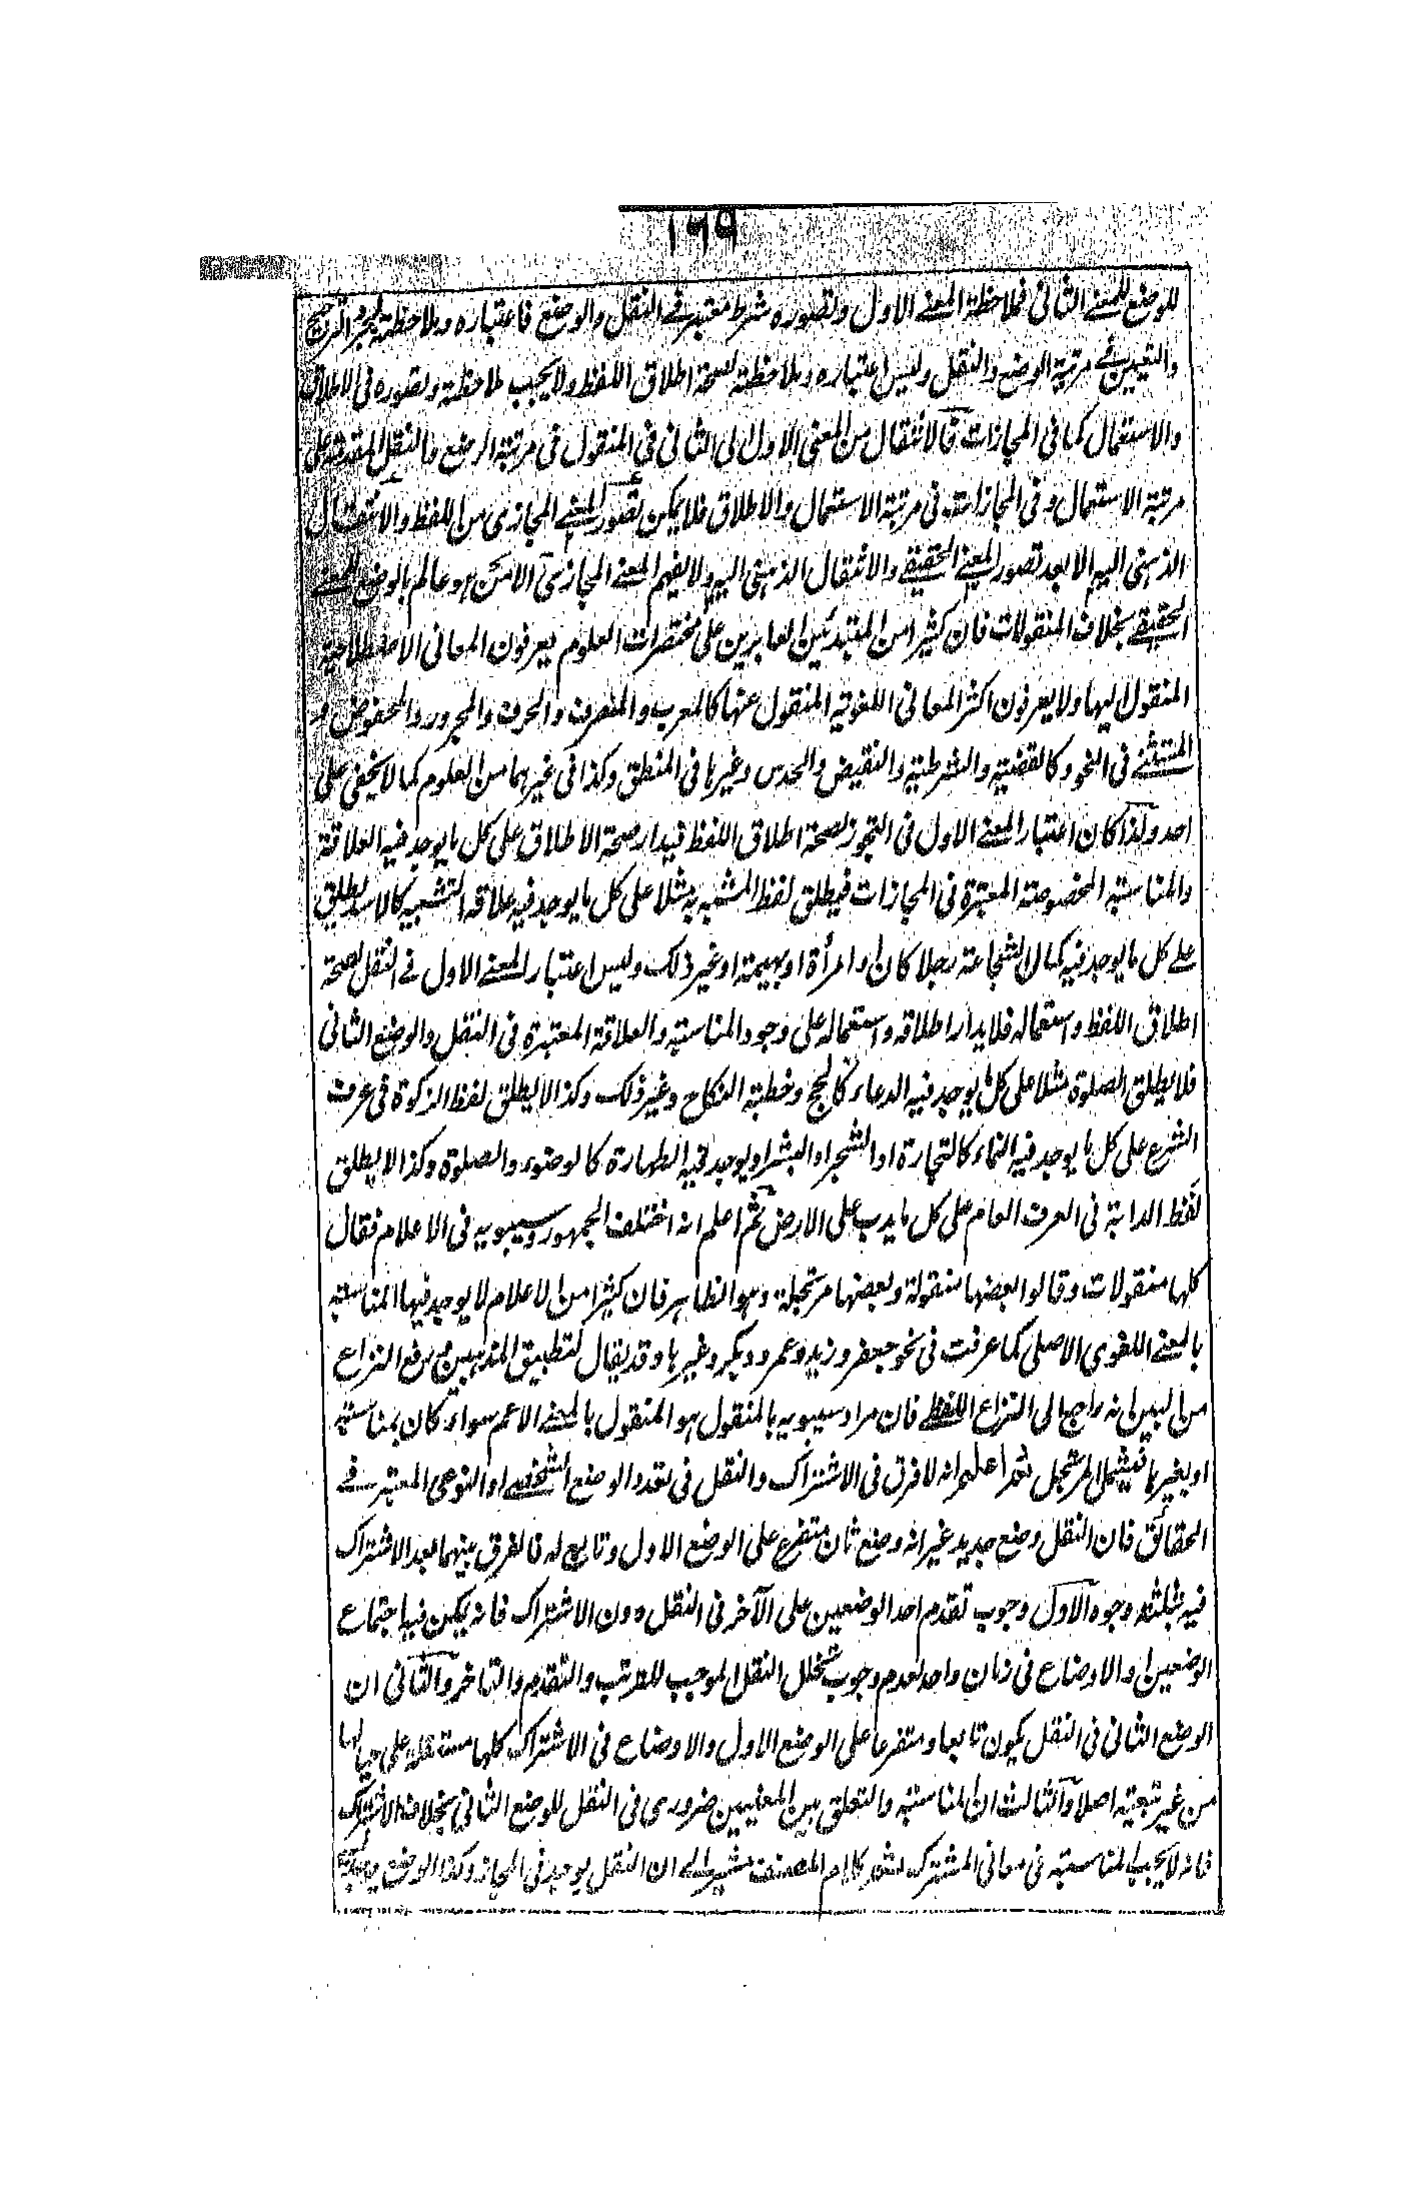 ١٦٩
للوضع للمعنى الثاني فملاحظة المعنى الاول وتصوره شرط معتبر في النقل والوضع فاعتباره وملاحظته لمجرد الترجيح
والتعيين في مرتبة الوضع والنقل وليس اعتباره وملاحظته لصحة اطلاق اللفظ ولا يجب ملاحظته وتصوره في الاطلاق
والاستعمال كما في المجازات فالانتقال من المعنى الاول الى الثاني في المنقول في مرتبة الوضع والنقل المتقدمة على
مرتبة الاستعمال وفي المجازات في مرتبة الاستعمال والاطلاق فلا يمكن تصور المعنى المجازي من اللفظ والانتقال
الذهني اليه الا بعد تصور المعنى الحقيقي والانتقال الذهني اليه ولا يفهم المعنى المجازي الا من هو عالم بالوضع للمعنى
الحقيقي بخلاف المنقولات فان كثيرا من المبتدئين العابرين على مختصرات العلوم يعرفون المعاني الاصطلاحية
المنقول اليها ولا يعرفون اكثر المعاني اللغوية المنقول عنها كالمعرب والمنصرف والحرف والمجرور والمخفوض و
المستثنى في النحو وكالقضية والشرطية والنقيض والحدس وغيرها في المنطق وكذا في غيرهما من العلوم كما لا يخفى على
احد ولذا كان اعتبار المعنى الاول في التجوز لصحة اطلاق اللفظ فيدار صحة الاطلاق على كل ما يوجد فيه العلاقة
والمناسبة المخصوصة المعتبرة في المجازات فيطلق لفظ المشبه به مثلا على كل ما يوجد فيه علاقة التشبيه كالاسد يطلق
على كل ما يوجد فيه كمال الشجاعة رجلا كان او امرأة او بهيمة او غير ذلك وليس اعتبار المعنى الاول في النقل لصحة
اطلاق اللفظ واستعماله فلا يدار اطلاقه واستعماله على وجود المناسبة والعلاقة المعتبرة في النقل والوضع الثاني
فلا يطلق الصلوة مثلا على كل ما يوجد فيه الدعاء كالحج وخطبة النكاح وغير ذلك وكذا لا يطلق لفظ الزكوة في عرف
الشرع على كل ما يوجد فيه النماء كالتجارة او الشجر او البشر او يوجد فيه الطهارة كالوضوء والصلوة وكذا لا يطلق
لفظ الدابة في العرف العام على كل ما يدب على الارض ثم اعلم انه اختلف الجمهور وسيبويه في الاعلام فقال
كلها منقولات وقالوا بعضها منقولة وبعضها مرتجلة وهو الظاهر فان كثيرا من الاعلام لا يوجد فيها المناسبة
بالمعنى اللغوي الاصلي كما عرفت في نحو جعفر وزيد وعمرو وبكر وغيرها وقد يقال لتطبيق المذهبين ورفع النزاع
من البين انه راجع الى النزاع اللفظي فان مراد سيبويه بالمنقول هو المنقول بالمعنى الاعم سواء كان بمناسبة
او بغيرها فيشمل المرتجل ثم اعلم انه لا فرق في الاشتراك والنقل في تعدد الوضع الشخصي او النوعي المعتبر في
الحقائق فان النقل وضع جديد غير انه وضع ثان متفرع على الوضع الاول وتابع له فالفرق بينهما بعد الاشتراك
فيه بثلثة وجوه الاول وجوب تقدم احد الوضعين على الآخر في النقل دون الاشتراك فانه يمكن فيه اجتماع
الوضعين او الاوضاع في زمان واحد لعدم وجوب تخلل النقل الموجب للترتب والتقدم والتاخر والثاني ان
الوضع الثاني في النقل يكون تابعا ومتفرعا على الوضع الاول والاوضاع في الاشتراك كلها مستقلة على حيالها
من غير تبعية اصلا والثالث ان المناسبة والتعلق بين المعنيين ضروري في النقل للوضع الثاني بخلاف الاشتراك
فانه لا يجب المناسبة في معاني المشترك ثم كلام المصنف مشير الى ان النقل يوجد في المجاز وكذا الوضع